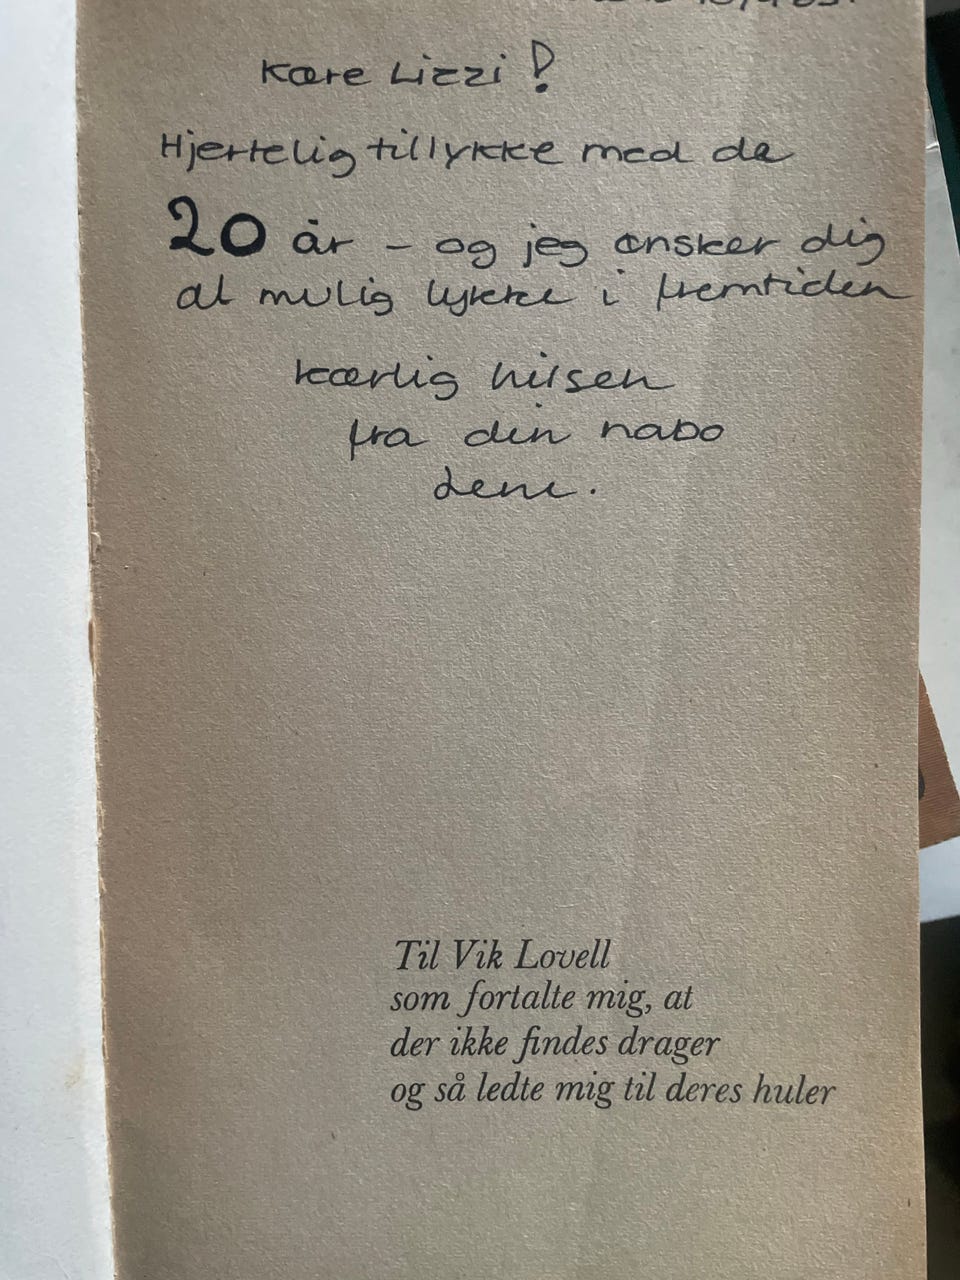 Kære Lizzi!
Hjertelig tillykke med de
20 år - og jeg ønsker dig
al mulig lykke i fremtiden
kærlig hilsen
fra din nabo
Til Vik Lovell
som fortalte mig, at
der ikke findes drager
og så ledte mig til deres huler